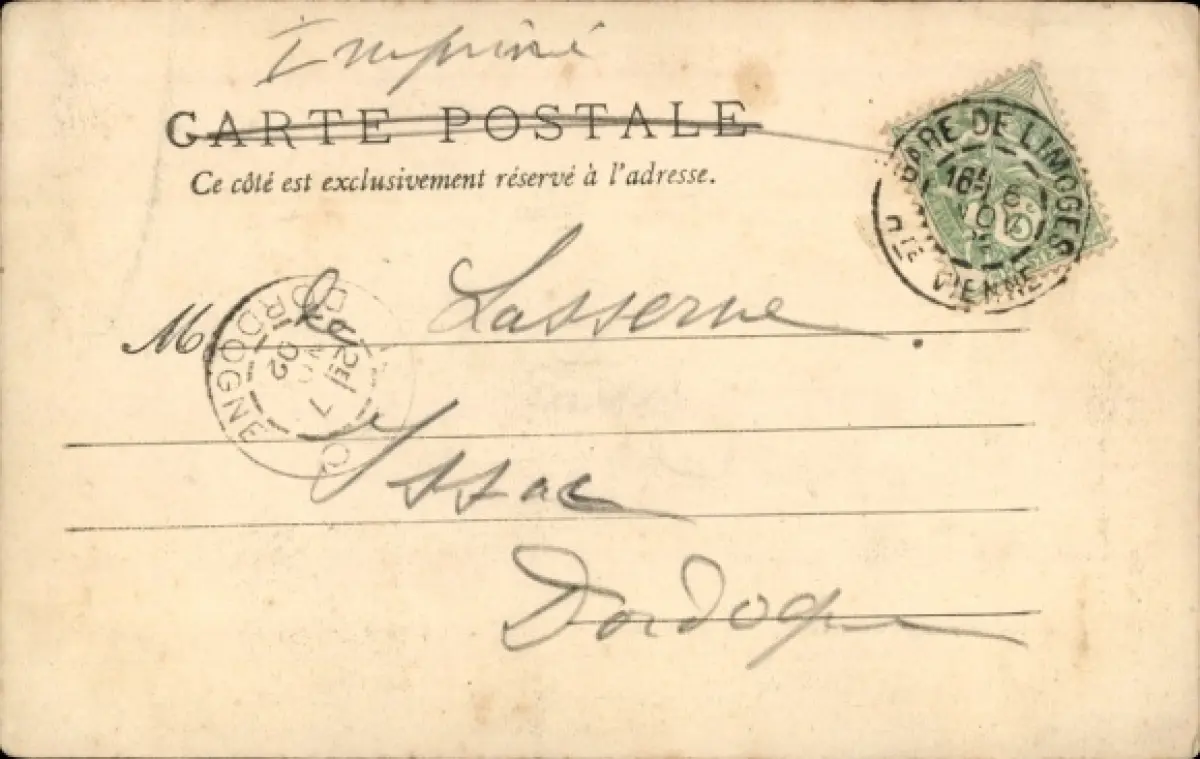 Imprimé
CARTE POSTALE
Ce côté est exclusivement réservé à l'adresse.
GARE DE LIMOGES
16
6
02
Hte VIENNE
M de Lasserne
DORDOGNE
7
02
Issac
Dordogne